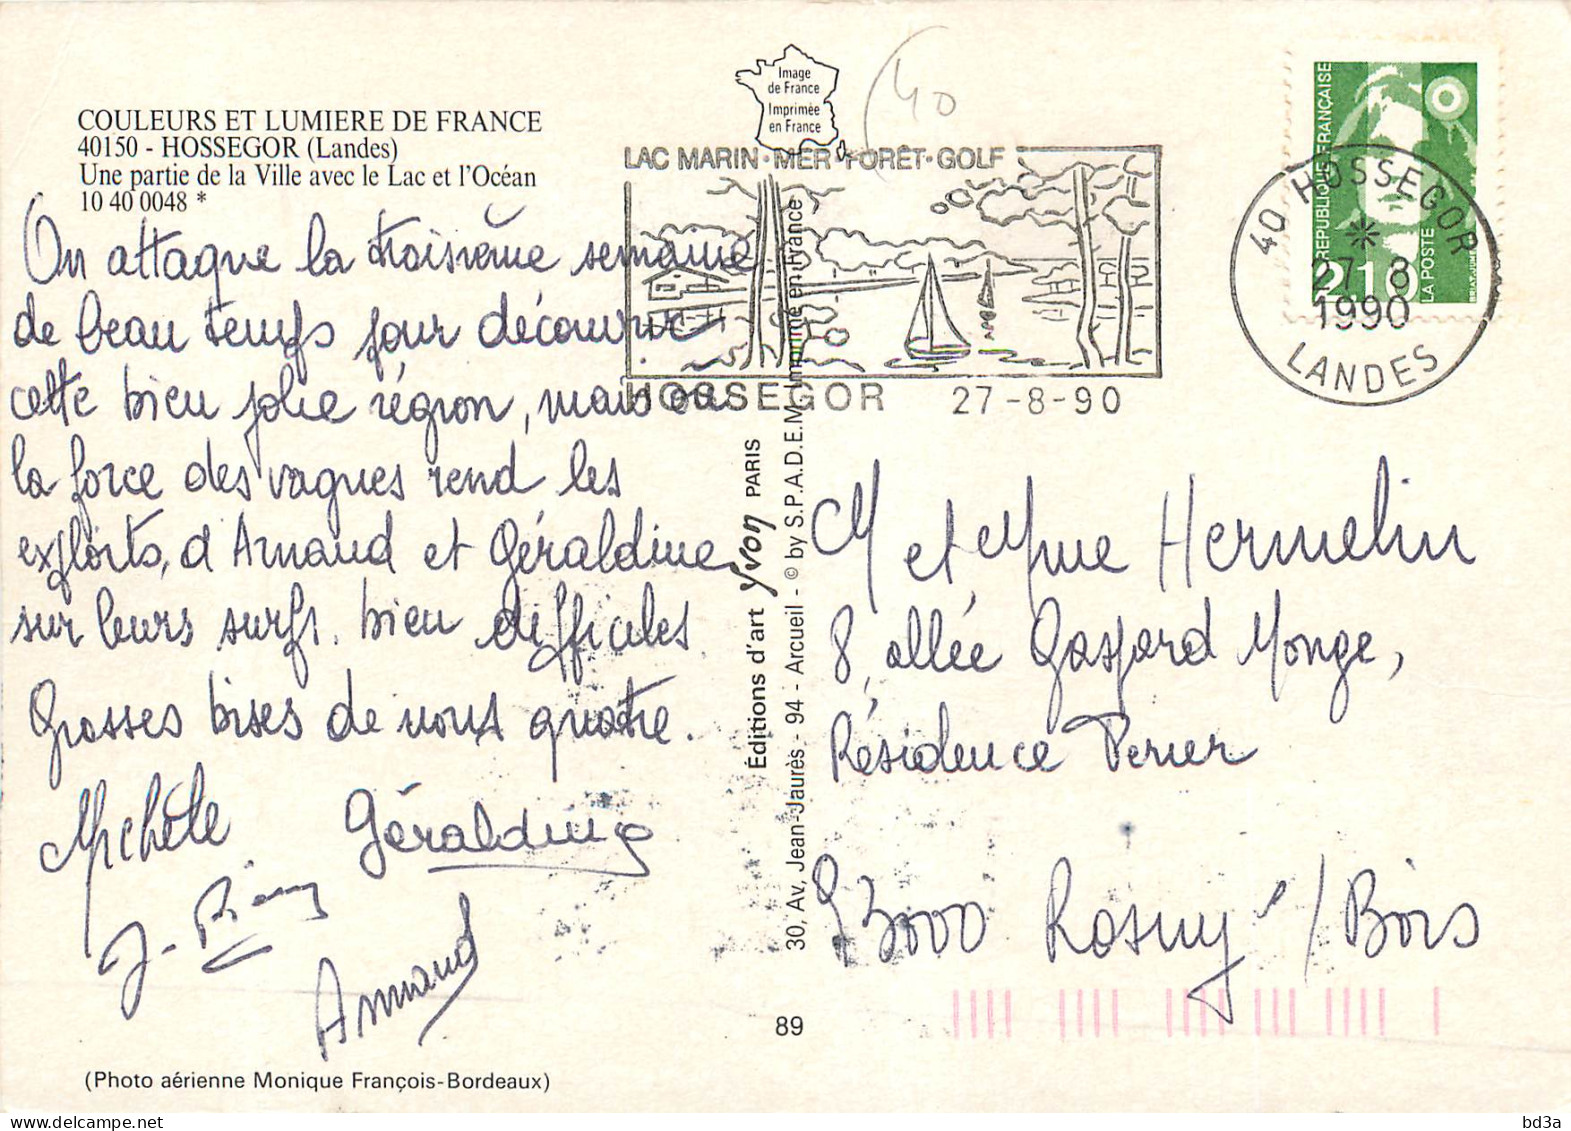 COULEURS ET LUMIERE DE FRANCE
40150 - HOSSEGOR (Landes)
Une partie de la Ville avec le Lac et l'Océan
10 40 0048 *
On attaque la troisième semaine
de beau temps pour découvrir
cette bien jolie région, mais où
la force des vagues rend les
exploits, d'Arnaud et Géraldine
sur leurs surfs. bien difficiles
Grosses bises de nous quatre.
Michèle Géraldine
Arnaud
(Photo aérienne Monique François-Bordeaux)
Image
de France
Imprimée
en France
40
LAC MARIN · MER · FORÊT · GOLF
HOSSEGOR 27-8-90
Éditions d'art Yvon PARIS
30, Av, Jean-Jaurès - 94 - Arcueil - © by S.P.A.D.E.M. Imprimé en France
89
RÉPUBLIQUE FRANÇAISE
2,10
LA POSTE
40 HOSSEGOR
27-8
1990
LANDES
M et Mme Hermelin
8, allée Gaspard Monge,
Résidence Perier
93000 Rosny s/Bois
bd3a